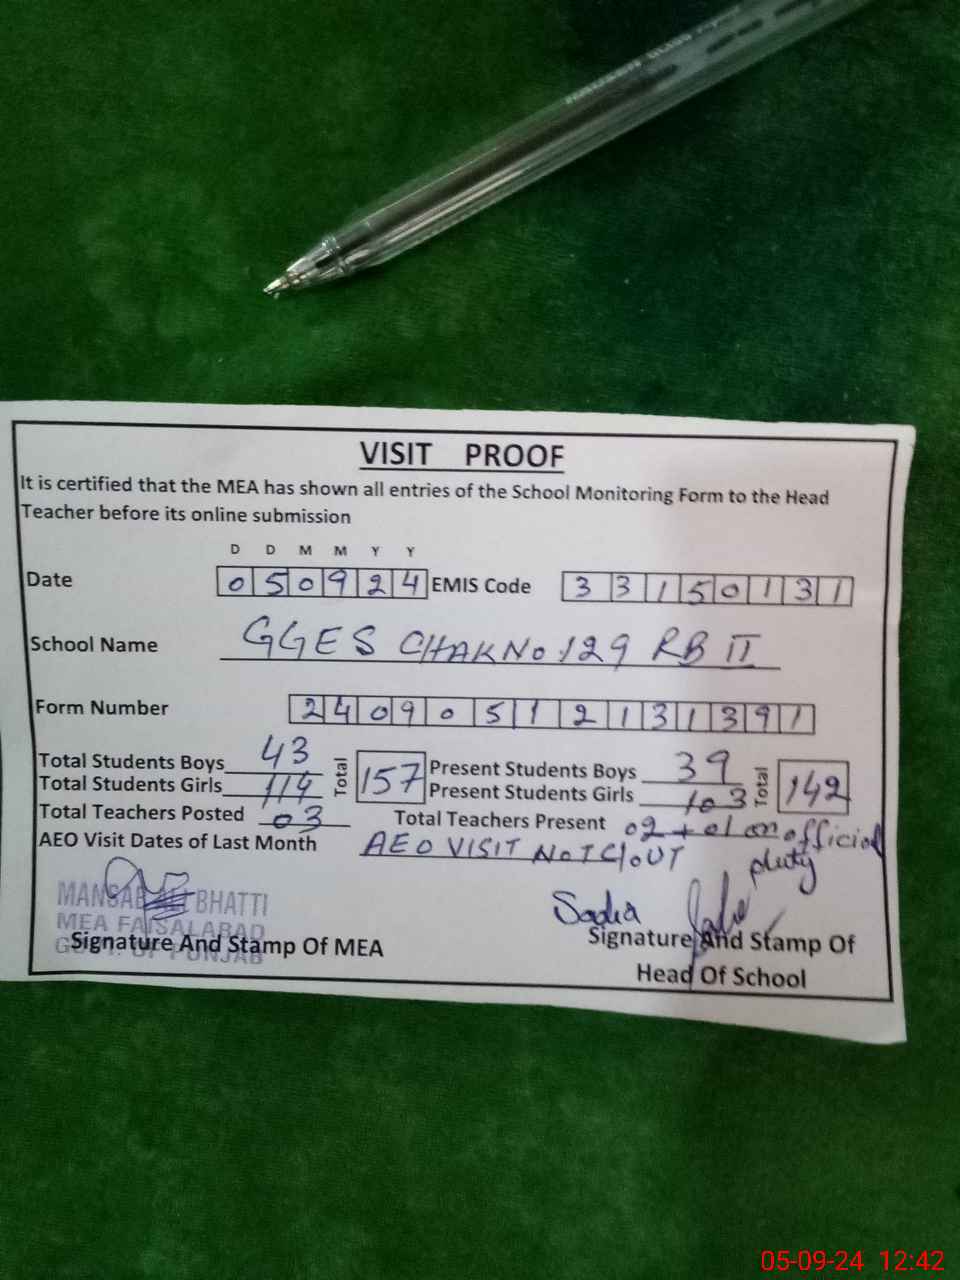 VISIT PROOF
It is certified that the MEA has shown all entries of the School Monitoring Form to the Head
Teacher before its online submission
D D M M Y Y
Date 050924 EMIS Code 33150131
School Name GGES CHAK No.129 RB II
Form Number 24090512131391
Total Students Boys 43 Total 157 Present Students Boys 39 Total 142
Total Students Girls 114 Present Students Girls 103
Total Teachers Posted 03 Total Teachers Present 02 + 01 on official
duty
AEO Visit Dates of Last Month AEO VISIT NOT
MANSAB ALI BHATTI
MEA FAISALABAD
GOVT. OF PUNJAB
Signature And Stamp Of MEA
Sadia
Signature And Stamp Of
Head Of School
05-09-24 12:42